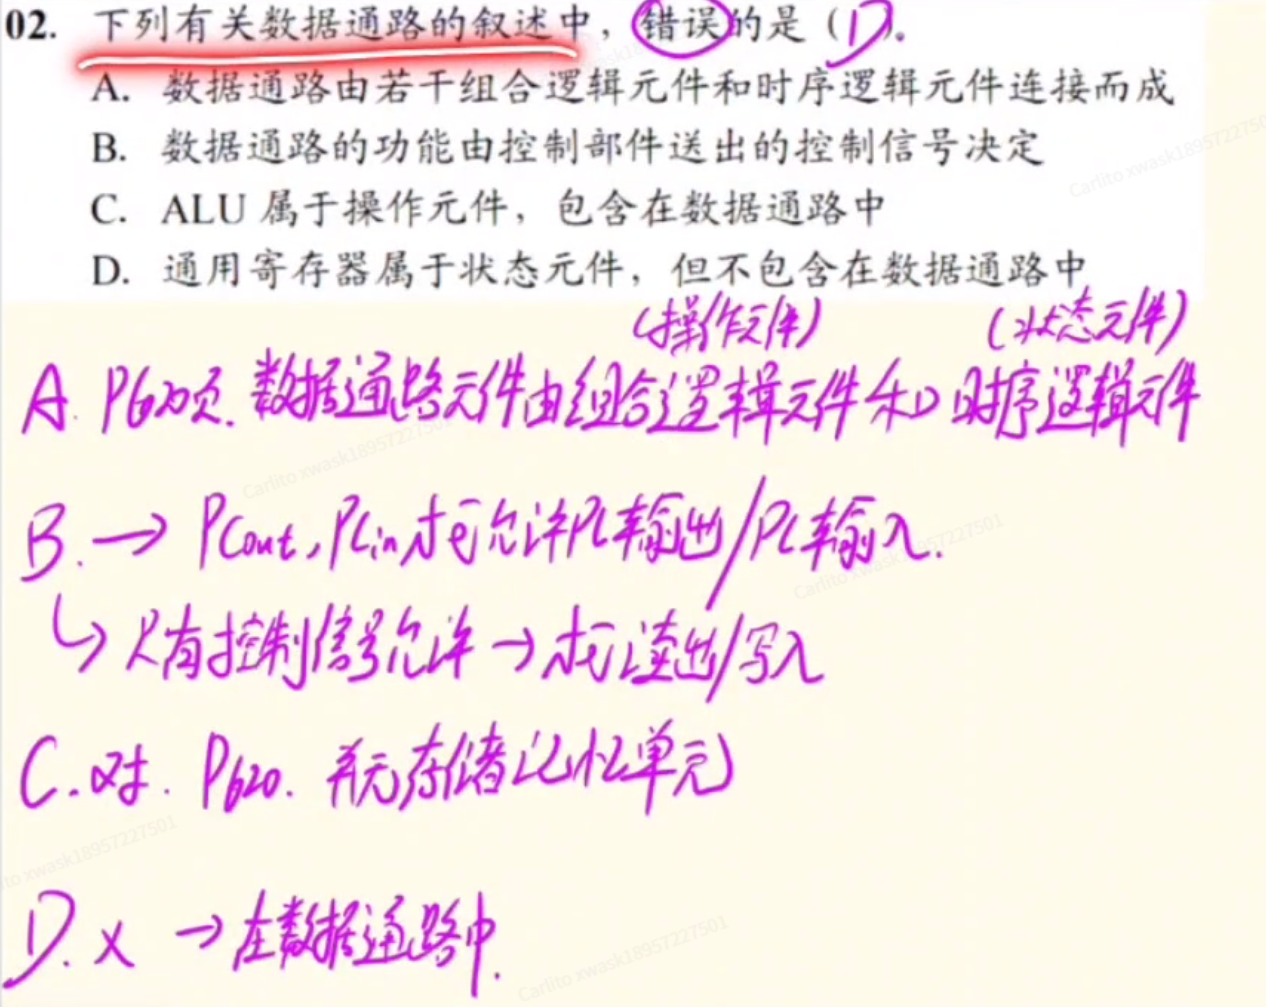 02. 下列有关数据通路的叙述中，错误的是（D）。
A. 数据通路由若干组合逻辑元件和时序逻辑元件连接而成
B. 数据通路的功能由控制部件送出的控制信号决定
C. ALU 属于操作元件，包含在数据通路中
D. 通用寄存器属于状态元件，但不包含在数据通路中
(操作元件) (状态元件)
A. 页. 数据通路元件由组合逻辑元件和时序逻辑元件
B. → PCout, PCin 才能允许PC输出/PC输入.
↳ 只有控制信号允许 → 才能读出/写入
C. 对. P620. 并无存储记忆单元
D. × → 在数据通路中.
Carlito xwask18957227501
Carlito xwask18957227501
Carlito xwask18957227501
Carlito xwask18957227501